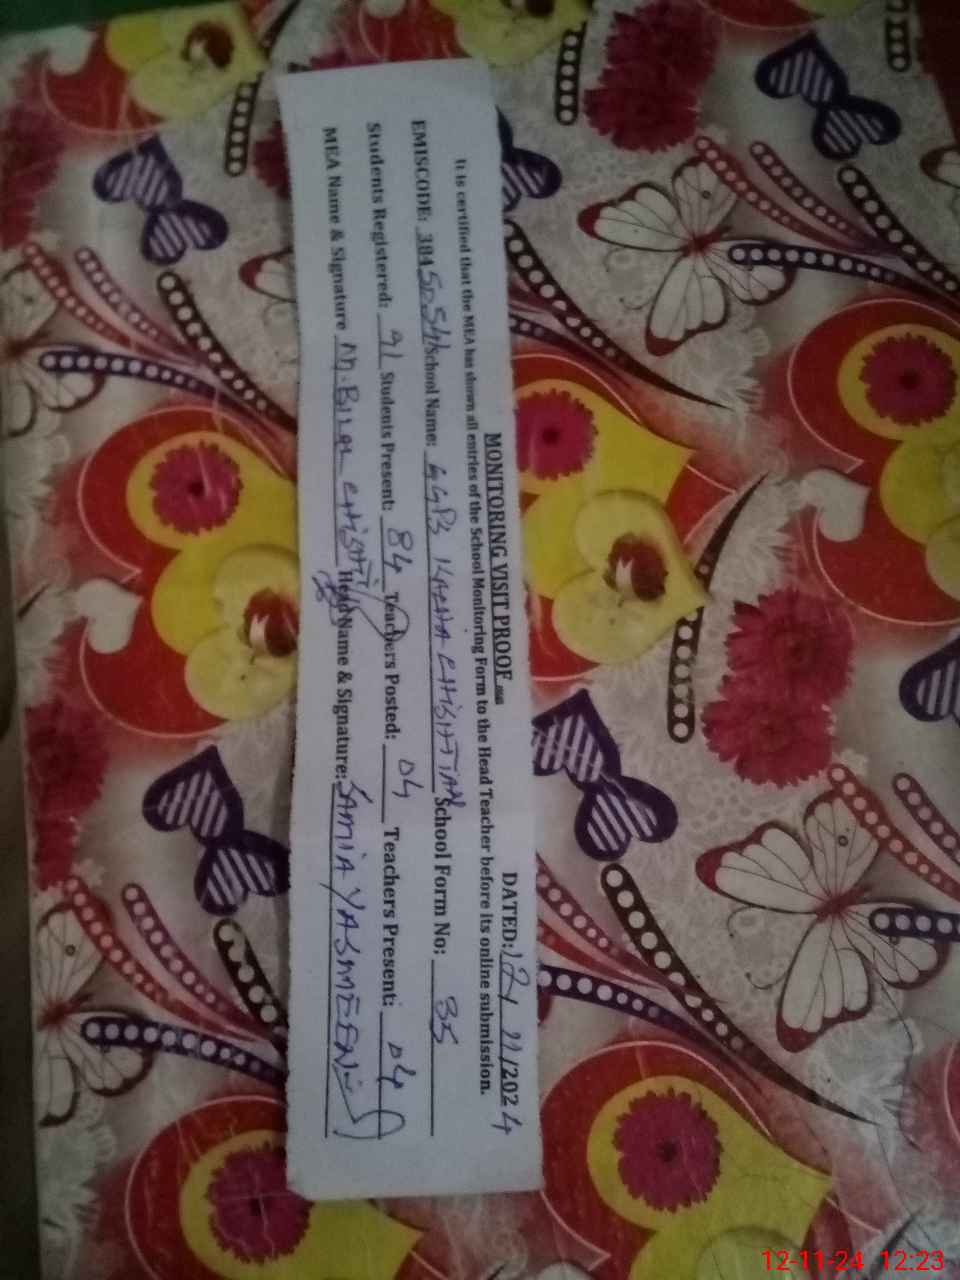 MONITORING VISIT PROOF DATED: 12/11/2024
It is certified that the MEA has shown all entries of the School Monitoring Form to the Head Teacher before its online submission.
EMISCODE: 384 School Name: GGPS CHISHTIAN School Form No: 35
Students Registered: 91 Students Present: 84 Teachers Posted: 04 Teachers Present: 04
MEA Name & Signature M. Bilal CHISHTI Head Name & Signature: SAMIA YASMEEN
12-11-24 12:23